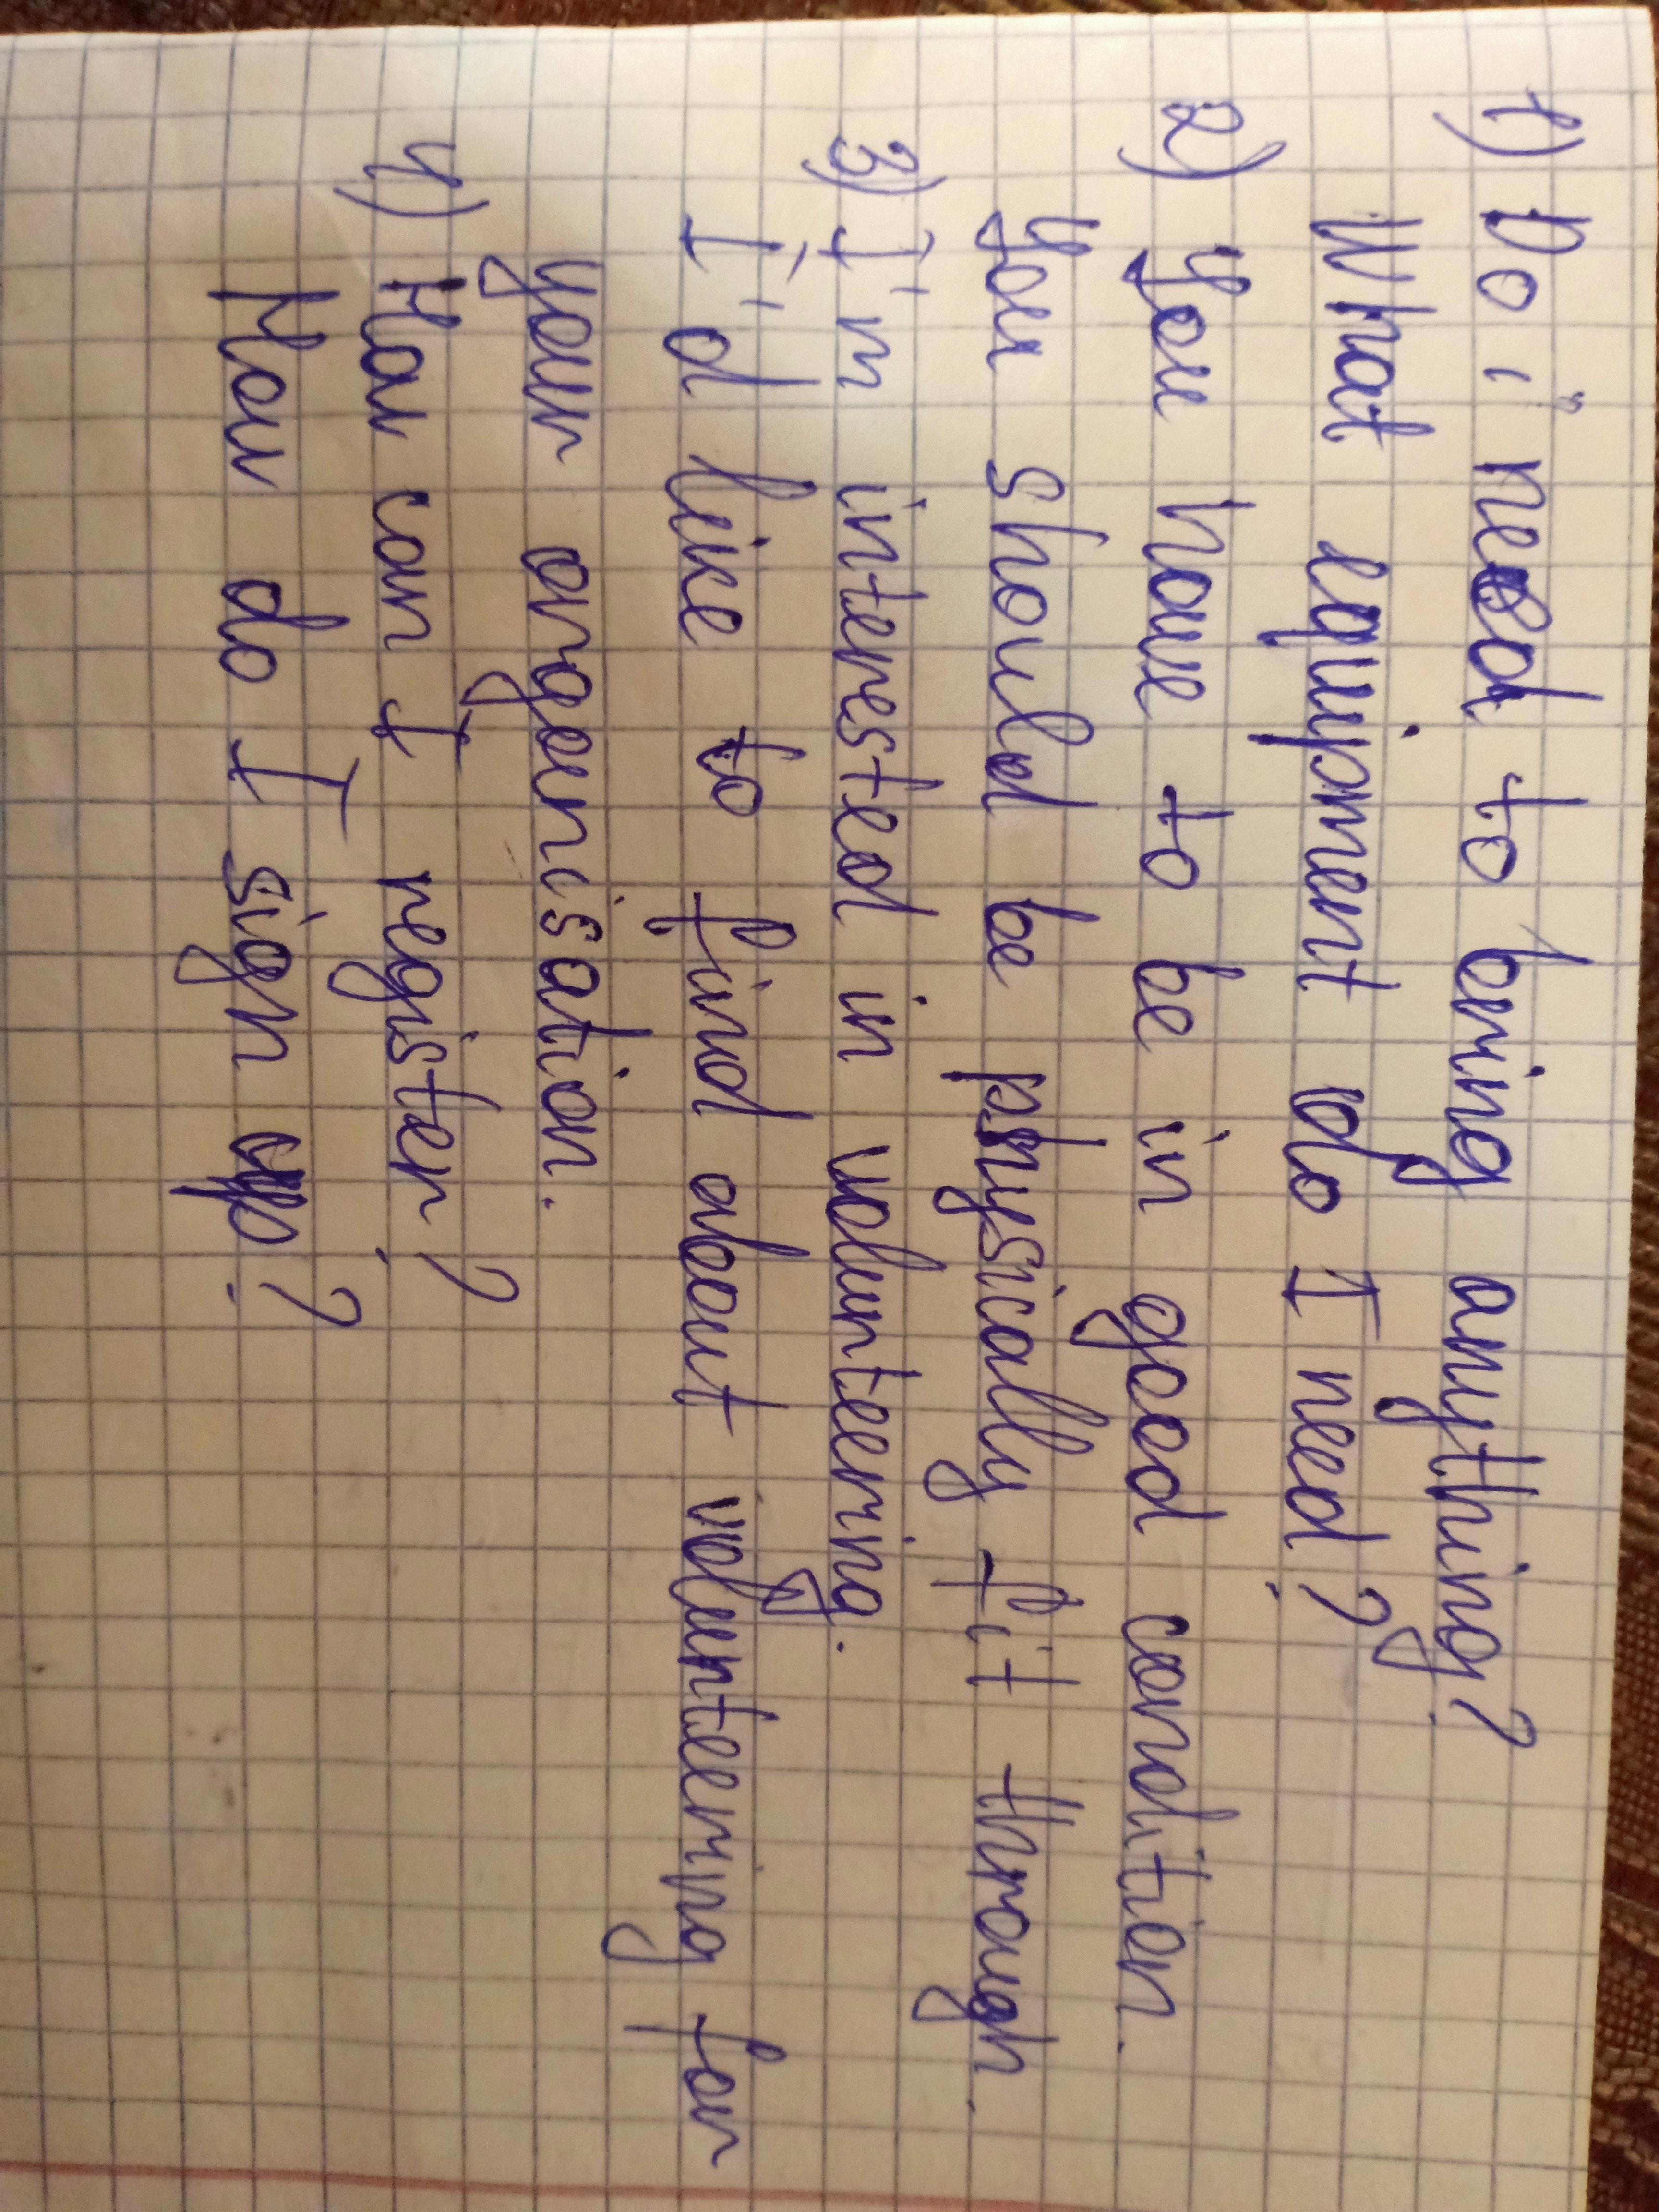 1) Do i need to bring anything?
What equipment do I need?
2) You have to be in good condition.
You should be physically fit through.
3) I'm interested in volunteering.
I'd like to find about volunteering for
your organisation.
4) How can I register?
How do I sign up?